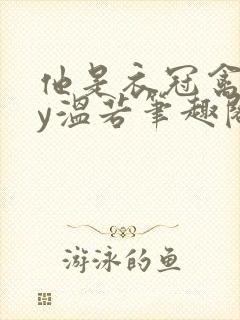 他是衣冠禽
y温若笔趣阁
游泳的鱼